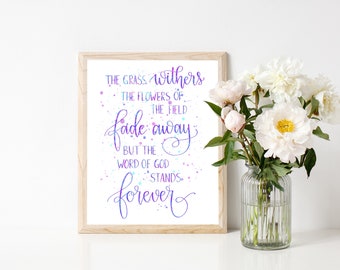 THE GRASS withers
THE FLOWERS OF
THE FIELD
fade away
BUT THE
WORD OF GOD
STANDS
forever